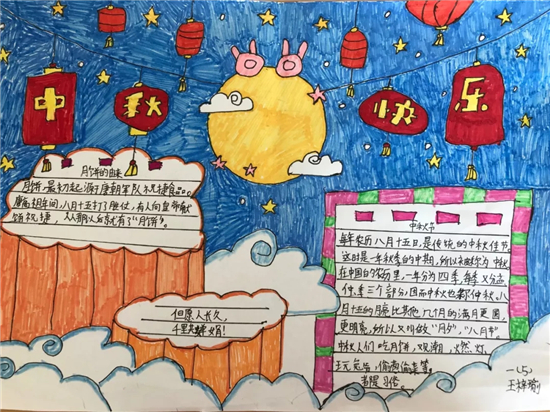 中秋快乐
月饼的由来
月饼,最初起源于唐朝军队祝捷食品。
唐高祖年间,八月十五打了胜仗,有人向皇帝献
饼祝捷,从那以后就有了“月饼”。
但愿人长久,
千里共婵娟!
中秋节
每年农历八月十五日,是传统的中秋佳节
这时是一年秋季的中期,所以被称为中秋
在中国的农历里,一年分为四季,每季又分孟、
仲、季三个部分,因而中秋也称仲秋。八
月十五的月亮比其他几个月的满月更圆,
更明亮,所以又叫做“月夕”,“八月节”。
中秋人们吃月饼,观潮,燃灯,
玩兔
等习俗。
一(5)
王梓瑜